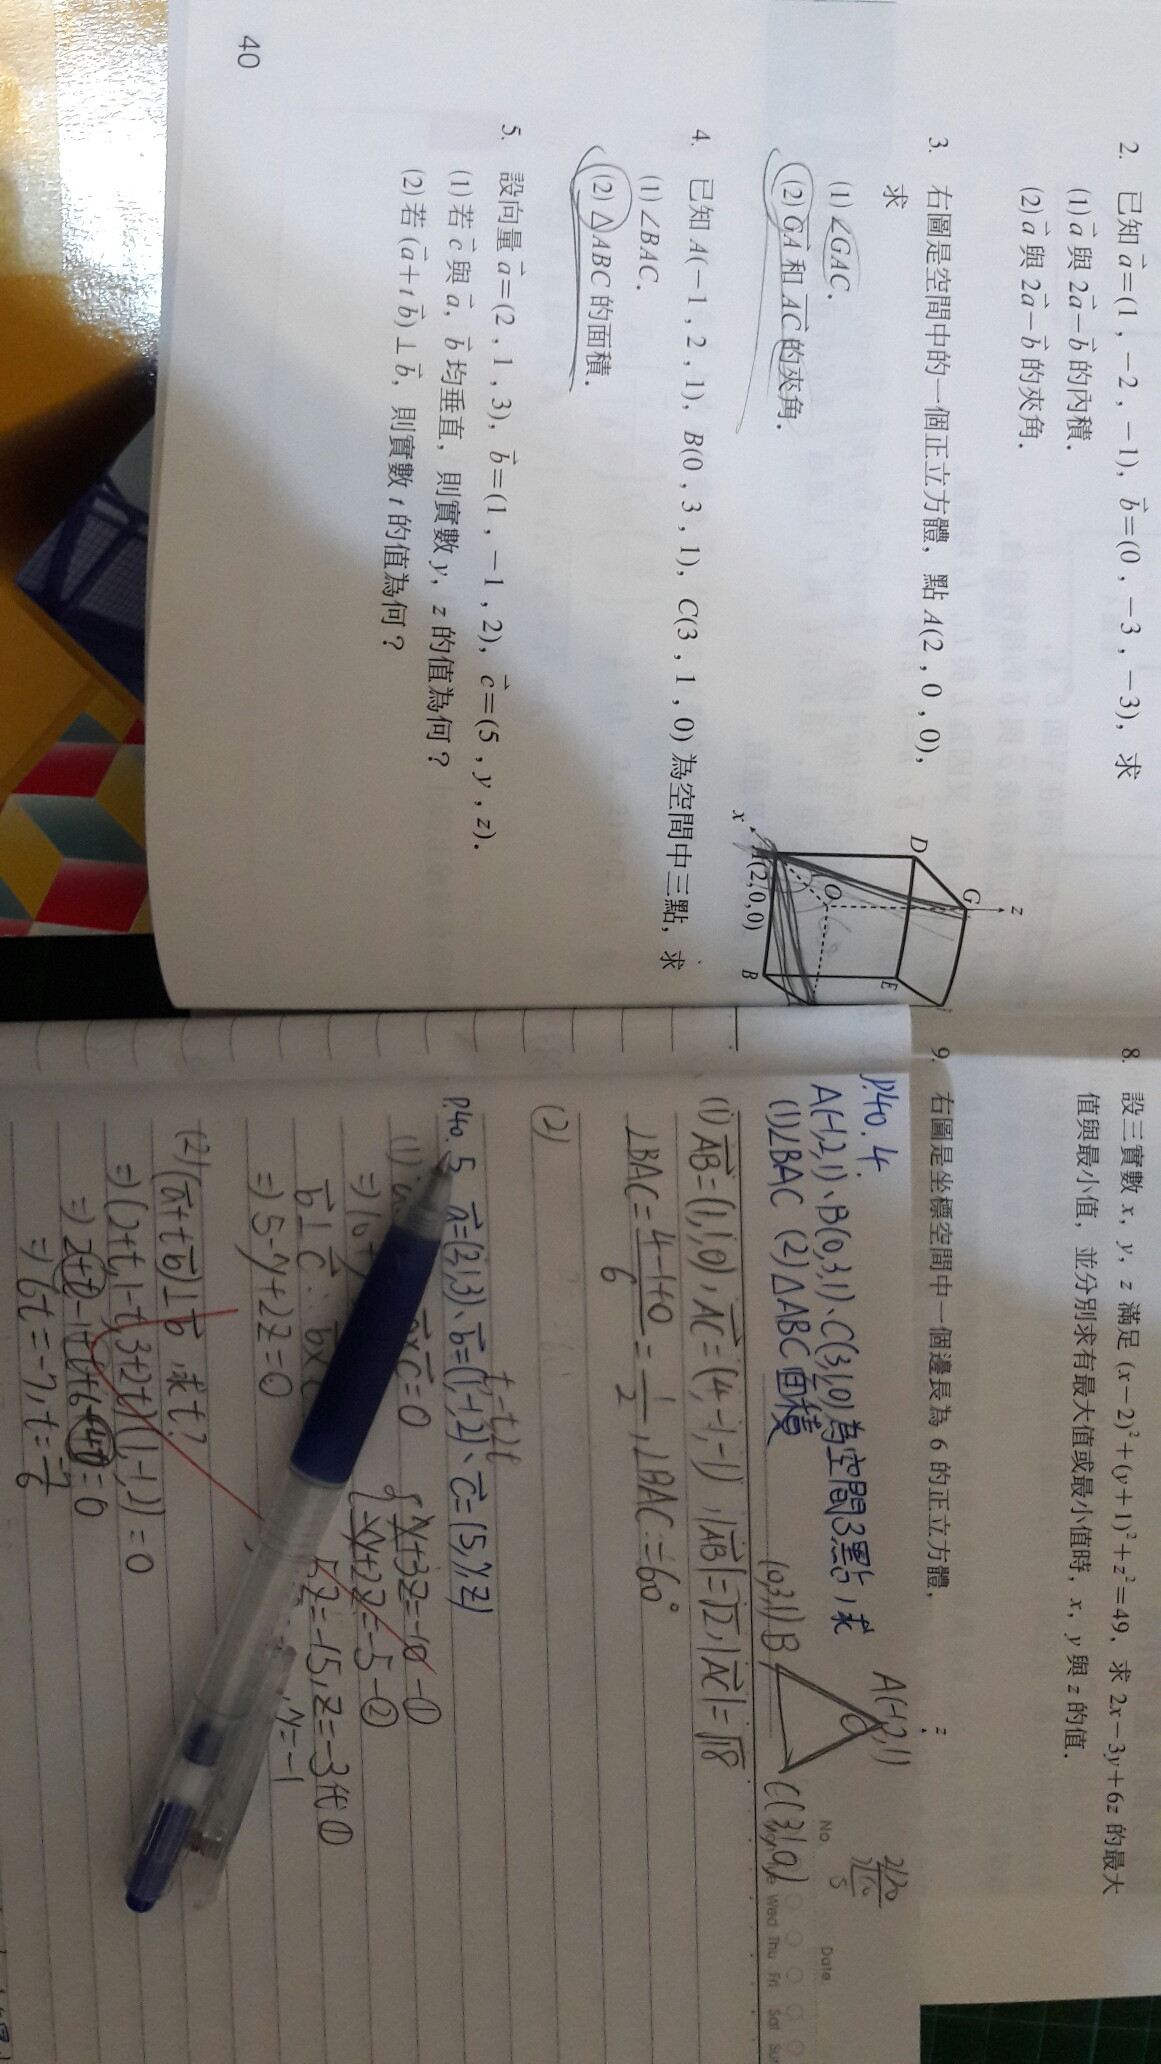 2. 已知 a⃗=(1,-2,-1), b⃗=(0,-3,-3), 求
(1) a⃗ 與 2a⃗-b⃗ 的內積.
(2) a⃗ 與 2a⃗-b⃗ 的夾角.
3. 右圖是空間中的一個正立方體, 點 A(2,0,0),
求
(1) ∠GAC.
(2) GA⃗ 和 AC⃗ 的夾角.
z
G
D
O
E
x
A(2,0,0)
B
4. 已知 A(-1,2,1), B(0,3,1), C(3,1,0) 為空間中三點, 求
(1) ∠BAC.
(2) △ABC 的面積.
5. 設向量 a⃗=(2,1,3), b⃗=(1,-1,2), c⃗=(5,y,z).
(1) 若 c⃗ 與 a⃗, b⃗ 均垂直, 則實數 y, z 的值為何?
(2) 若 (a⃗+t b⃗)⊥b⃗, 則實數 t 的值為何?
40
8. 設三實數 x, y, z 滿足 (x-2)²+(y+1)²+z²=49, 求 2x-3y+6z 的最大
值與最小值, 並分別求有最大值或最小值時, x, y 與 z 的值.
9. 右圖是坐標空間中一個邊長為 6 的正立方體,
z
No.
Date
Wed Thu Fri Sat Sun
P.40. 4
A(-1,2,1)、B(0,3,1)、C(3,1,0)為空間3點,求
(1)∠BAC (2)△ABC面積
A(-1,2,1)
(0,3,1)B
C(3,1,0)
(1) AB⃗=(1,1,0), AC⃗=(4,-1,-1), |AB⃗|=√2, |AC⃗|=√18
∠BAC=4-1+0/6=1/2, ∠BAC=60°
(2)
P.40. 5 a⃗=(2,1,3)、b⃗=(1,-1,2)、c⃗=(5,y,z)
c⃗=0
y+3z=-10-①
-y+2z=-5-②
5z=-15, z=-3代①
y=-1
b⃗⊥c⃗
⇒5-y+2z=0
(2)(a⃗+tb⃗)⊥b⃗,求t?
⇒(2+t,1-t,3+2t)(1,-1,2)=0
⇒2+t-1+t+6+4t=0
⇒6t=-7, t=-7/6